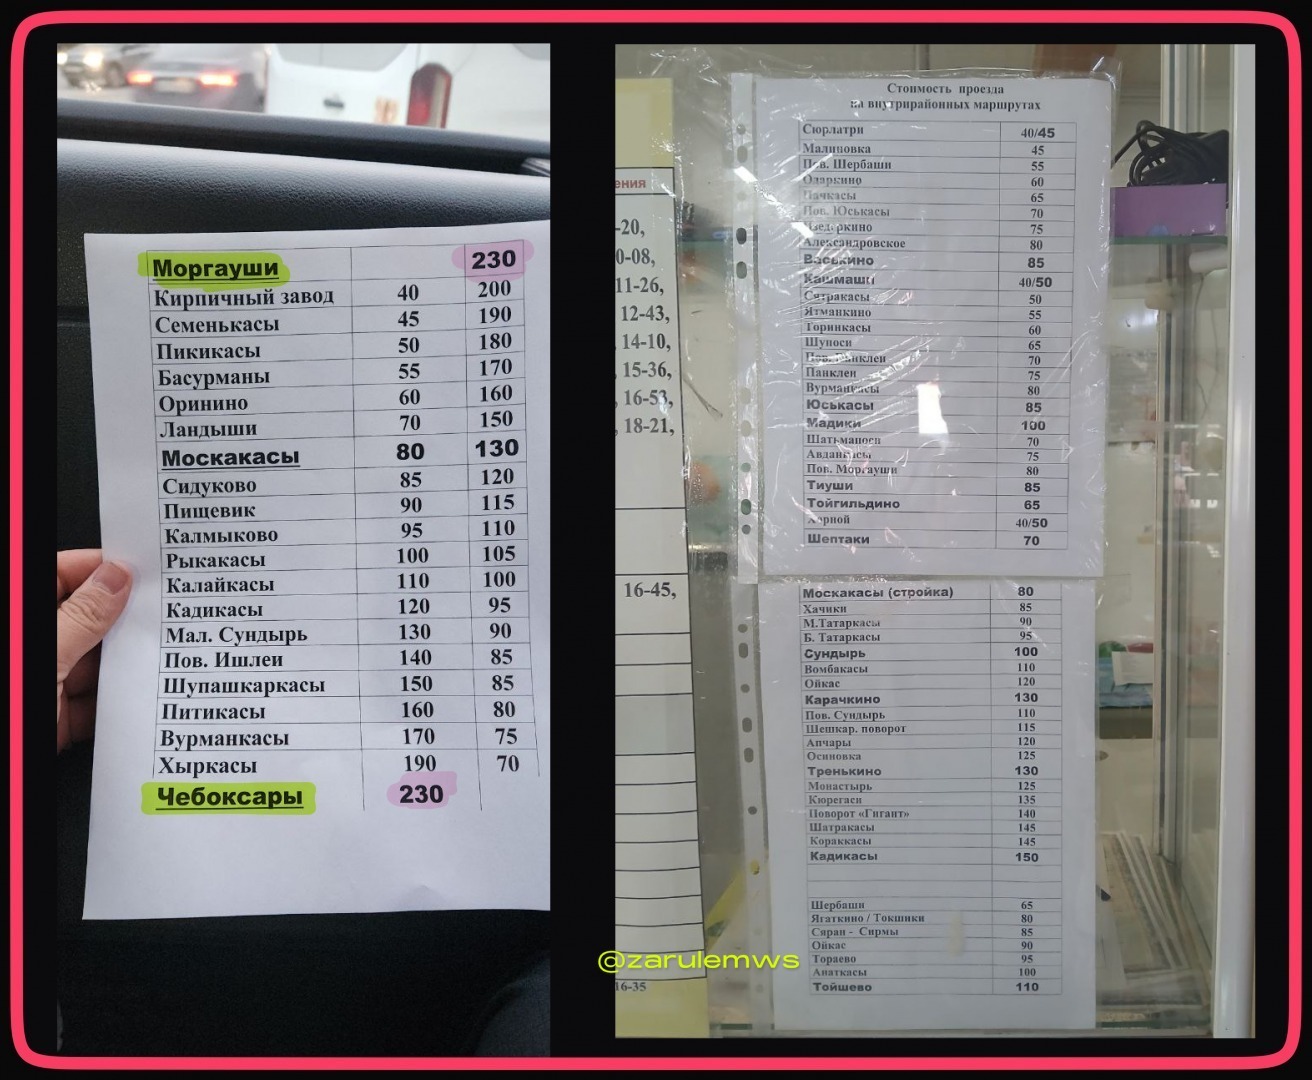 Моргауши 230
Кирпичный завод 40 200
Семенькасы 45 190
Пикикасы 50 180
Басурманы 55 170
Оринино 60 160
Ландыши 70 150
Москакасы 80 130
Сидуково 85 120
Пищевик 90 115
Калмыково 95 110
Рыкакасы 100 105
Калайкасы 110 100
Кадикасы 120 95
Мал. Сундырь 130 90
Пов. Ишлеи 140 85
Шупашкаркасы 150 85
Питикасы 160 80
Вурманкасы 170 75
Хыркасы 190 70
Чебоксары 230
ения
-20,
0-08,
11-26,
12-43,
14-10,
15-36,
16-53,
18-21,
16-45,
16-35
Стоимость проезда
на внутрирайонных маршрутах
Сюрлатри 40/45
Малиновка 45
Пов. Шербаши 55
Одаркино 60
Пачкасы 65
Пов. Юськасы 70
75
Александровское 80
Васькино 85
Кашмаши 40/50
Сятракасы 50
Ятманкино 55
Торинкасы 60
Шупоси 65
Пов. Панклеи 70
Панклеи 75
Вурманкасы 80
Юськасы 85
Мадики 100
Шатьмапоси 70
Авданкасы 75
Пов. Моргауши 80
Тиуши 85
Тойгильдино 65
Хорной 40/50
Шептаки 70
Москакасы (стройка) 80
Хачики 85
М.Татаркасы 90
Б. Татаркасы 95
Сундырь 100
Вомбакасы 110
Ойкас 120
Карачкино 130
Пов. Сундырь 110
Шешкар. поворот 115
Апчары 120
Осиновка 125
Тренькино 130
Монастырь 125
Кюрегаси 135
Поворот «Гигант» 140
Шатракасы 145
Кораккасы 145
Кадикасы 150
Шербаши 65
Ягаткино / Токшики 80
Сяран - Сирмы 85
Ойкас 90
Тораево 95
Анаткасы 100
Тойшево 110
@zarulemws